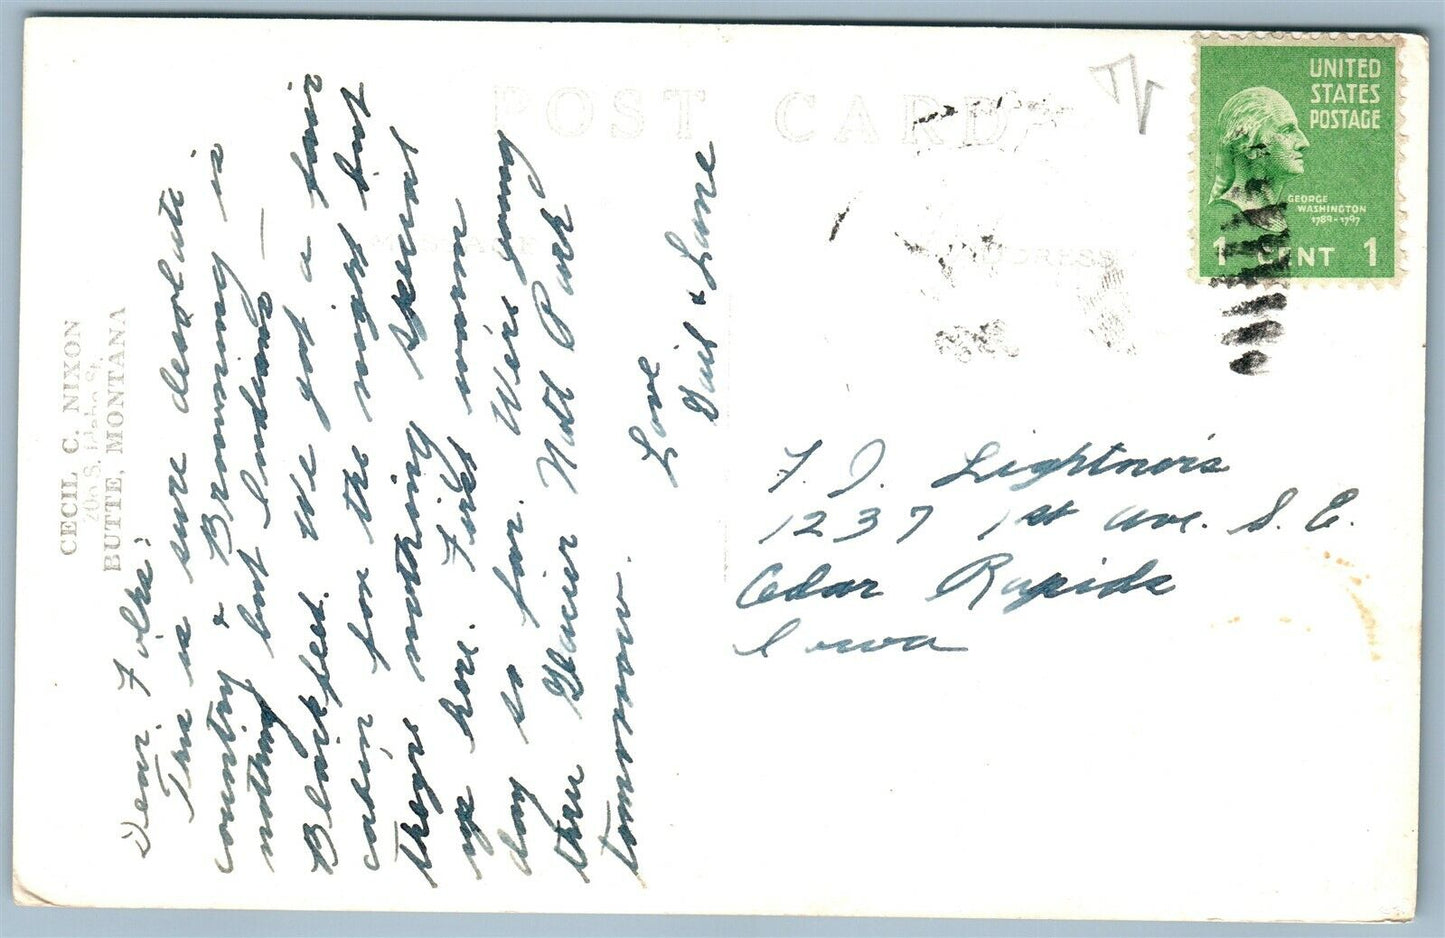 POST CARD
MESSAGE
ADDRESS
CECIL C. NIXON
S. Idaho St.
BUTTE, MONTANA
Dear Folks:
This is sure desolute
country & Browning is
nothing but Indians —
Blackfeet. We got a fair
cabin for the night but
they're nothing special
up here. First warm
day so far. We're going
thru Glacier Natl Park
tomorrow.
Love
Gail & Lane
UNITED
STATES
POSTAGE
GEORGE
WASHINGTON
1789-1797
1 CENT 1
F. J. Lightner's
1237 1st Ave. S. E.
Cedar Rapids
Iowa